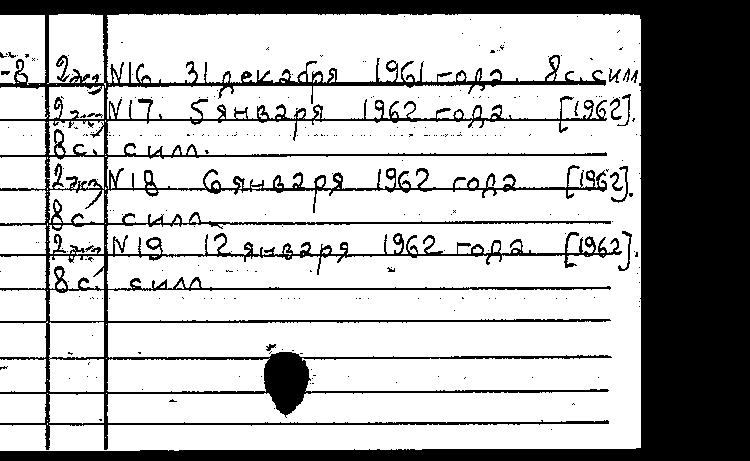 -8 2экз N16. 31 декабря 1961 года. 8с. силл
2экз N17. 5 января 1962 года. [1962].
8с. силл.
2экз N18. 6 января 1962 года [1962].
8с. силл.
2экз N19 12 января 1962 года. [1962].
8с. силл.